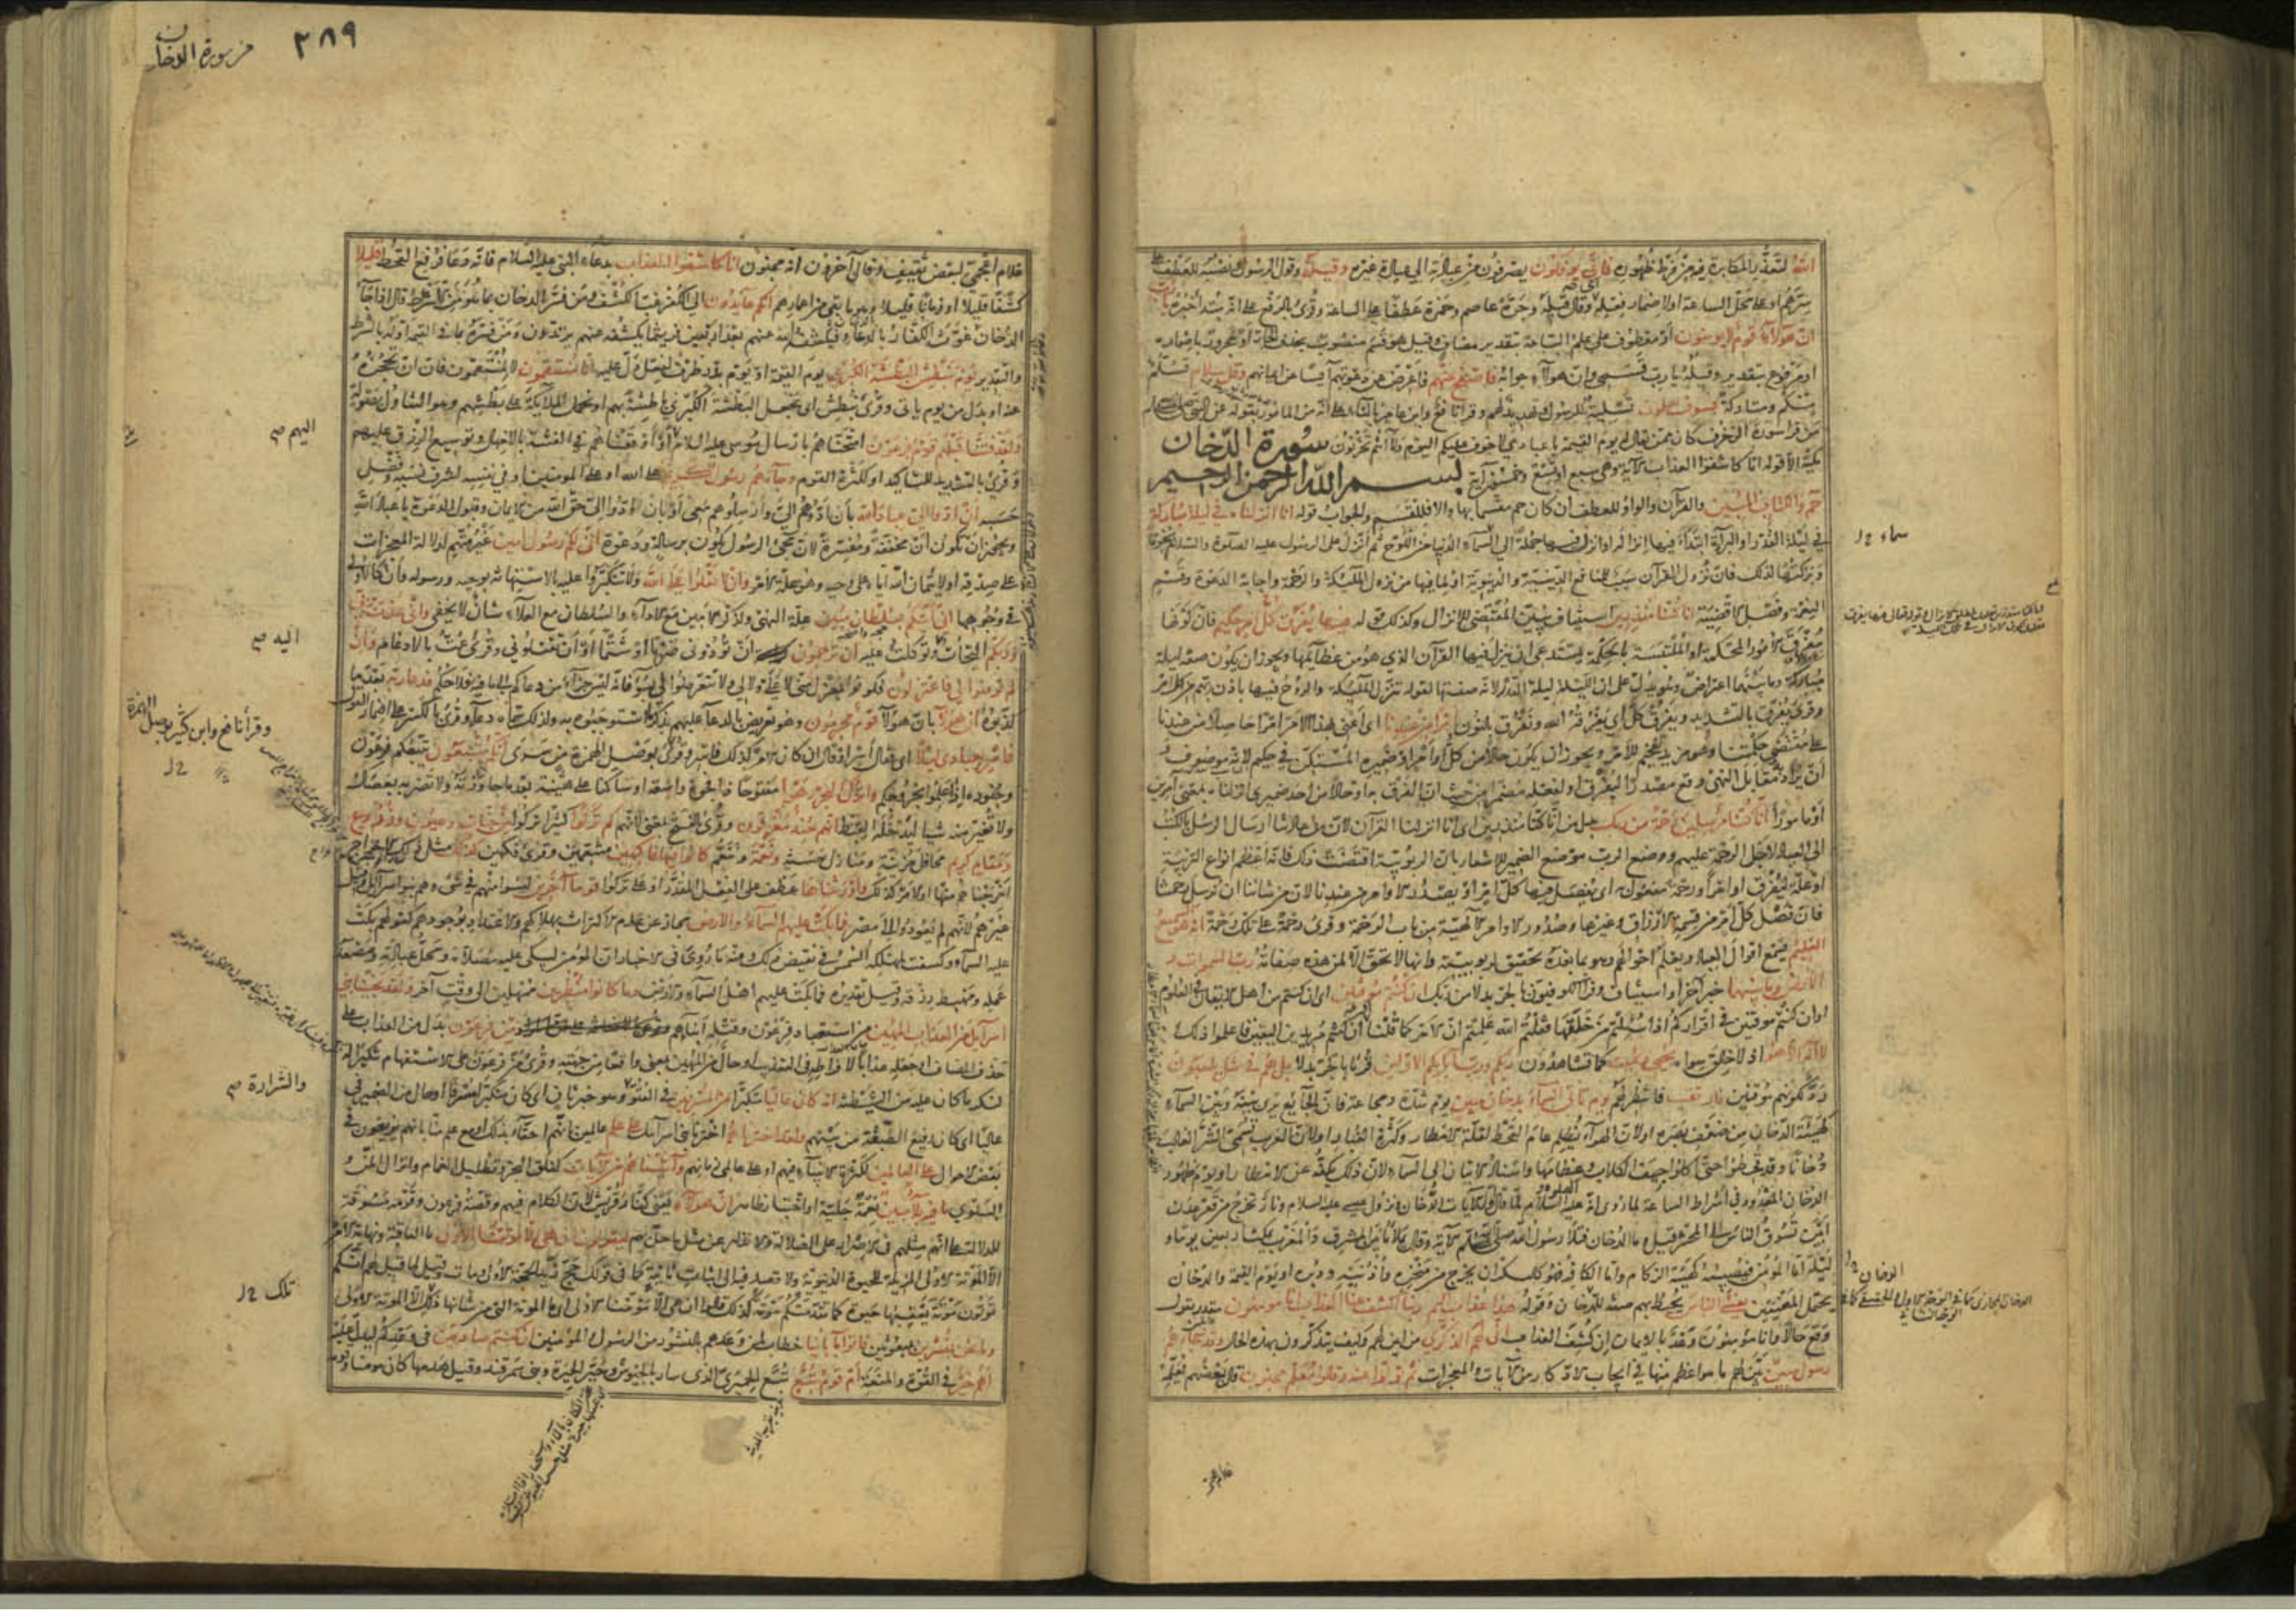 الله لتعذر المكابرة فيه من فرط ظهوره فانى يؤفكون يصرفون من عبادته الى عبادة غيره وقيله وقول الرسول ونصبه للعطف على
سرهم او على محل الساعة او لاضمار فعله اى وقال قيله وجره عاصم وحمزة عطفا على الساعة وقرئ بالرفع على انه مبتدأ خبره يا رب
ان هؤلاء قوم لا يؤمنون او معطوف على علم الساعة بتقدير مضاف وقيل هو قسم منصوب بحذف الجار او مجرور باضماره
او مرفوع بتقدير وقيله يا رب قسمى وان هؤلاء جوابه فاصفح عنهم فاعرض عن دعوتهم آيسا عن ايمانهم وقل سلام تسلم
منكم ومتاركة فسوف يعلمون تسلية للرسول وتهديد لهم وقرأ نافع وابن عامر بالتاء على انه من المامور بقوله عن النبى صلى الله عليه وسلم
من قرأ سورة الزخرف كان ممن يقال له يوم القيمة يا عبادى لا خوف عليكم اليوم ولا انتم تحزنون سورة الدخان
مكية الا قوله انا كاشفوا العذاب الآية وهى سبع او تسع وخمسون آية بسم الله الرحمن الرحيم
حم والكتاب المبين والقرآن والواو للعطف ان كان حم مقسما بها والا فللقسم والجواب قوله انا انزلناه فى ليلة مباركة
فى ليلة القدر او البرآءة ابتدأ فيها انزاله او انزل فيها جملة الى السماء الدنيا من اللوح ثم انزل على الرسول عليه الصلوة والسلام نجوما
وبركتها لذلك فان نزول القرآن سبب للمنافع الدينية والدنيوية او لما فيها من نزول الملئكة والرحمة واجابة الدعوة وقسم
النعمة وفصل الاقضية انا كنا منذرين استيناف يبين المقتضى للانزال وكذلك قوله فيها يفرق كل امر حكيم فان كونها
مفرق الامور المحكمة او الملتبسة بالحكمة يستدعى ان ينزل فيها القرآن الذى هو من عظائمها ويجوز ان يكون صفة ليلة
مباركة وما بينهما اعتراض وهو يدل على ان الليلة ليلة القدر لانه صفتها لقوله تنزل الملئكة والروح فيها باذن ربهم من كل امر
وقرئ يفرق بالتشديد ويفرق كل اى يفرقه الله ونفرق بالنون امرا من عندنا اى اعنى بهذا الامر امرا حاصلا من عندنا
على مقتضى حكمتنا وهو مزيد تفخيم للامر ويجوز ان يكون حالا من كل او امر او ضميره المستكن فى حكيم لانه موصوف و
ان يراد به مقابل النهى وقع مصدرا ليفرق او لفعله مضمرا من حيث ان الفرق به او حالا من احد ضميرى انزلناه بمعنى آمرين
او مامورا انا كنا مرسلين رحمة من ربك بدل من انا كنا منذرين اى انا انزلنا القرآن لان من عادتنا ارسال الرسل بالكتب
الى العباد لاجل الرحمة عليهم ووضع الرب موضع الضمير للاشعار بان الربوبية اقتضت ذلك فانه اعظم انواع التربية
او علة ليفرق او امرا ورحمة مفعول به اى يفصل فيها كل امر او يصدر الاوامر من عندنا لان من شاننا ان نرسل رحمتنا
فان فصل كل امر من قسمة الارزاق وغيرها وصدور الاوامر الآلهية من باب الرحمة وقرئ رحمة على تلك رحمة انه هو السميع
العليم يسمع اقوال العباد ويعلم احوالهم وهو بما بعده تحقيق لربوبيته وانها لا تحق الا لمن هذه صفاته رب السموات و
الارض وما بينهما خبر آخر او استيناف وقرأ الكوفيون بالجر بدلا من ربك ان كنتم موقنين اى ان كنتم من اهل الايقان فى العلوم
او ان كنتم موقنين فى اقراركم اذا سئلتم من خلقها فقلتم الله علمتم ان الامر كما قلنا او ان كنتم مريدين اليقين فاعلموا ذلك
لا اله الا هو اذ لا خالق سواه يحيى ويميت كما تشاهدون ربكم ورب آبائكم الاولين قرئا بالجر بدلا بل هم فى شك يلعبون
رد لكونهم موقنين فارتقب فانتظر لهم يوم تاتى السماء بدخان مبين يوم شدة ومجاعة فان الجائع يرى بينه وبين السماء
كهيئة الدخان من ضعف بصره او لان الهواء يظلم عام القحط لقلة الامطار وكثرة الغبار او لان العرب تسمى الشر الغالب
دخانا وقد قحطوا حتى اكلوا جيف الكلاب وعظامها واسناد الاتيان الى السماء لان ذلك يكفه عن الامطار او يوم ظهور
الدخان المعدود فى اشراط الساعة لما روى انه عليه السلام لما قال اول الآيات الدخان ونزول عيسى عليه السلام ونار تخرج من قعر عدن
ابين تسوق الناس الى المحشر قيل وما الدخان فتلا رسول الله صلى الله عليه وسلم الآية وقال يملأ ما بين المشرق والمغرب يمكث اربعين يوما و
ليلة اما المؤمن فيصيبه كهيئة الزكام واما الكافر فهو كالسكران يخرج من منخريه واذنيه ودبره او يوم القيمة والدخان
يحتمل المعنيين يغشى الناس يحيط بهم صفة للدخان وقوله هذا عذاب اليم ربنا اكشف عنا العذاب انا مؤمنون مقدر بقول
وقع حالا وانا مؤمنون وعد بالايمان ان كشف العذاب انى لهم الذكرى من اين لهم وكيف يتذكرون بهذه الحال وقد جاءهم
رسول مبين بين لهم ما هو اعظم منها فى ايجاب الادكار من الآيات والمعجزات ثم تولوا عنه وقالوا معلم مجنون قال بعضهم يعلمه
سماء
الدخان
غلام اعجمى
٣٨٩
من سورة الدخان
غلام اعجمى لبعض ثقيف وقال آخرون انه مجنون انا كاشفوا العذاب بدعاء النبى عليه السلام فانه دعا فرفع القحط قليلا
كشفا قليلا او زمانا قليلا وهو ما بقى من اعمارهم انكم عائدون الى الكفر غب الكشف ومن فسر الدخان بما هو من الاشراط قال اذا جاء
الدخان غوث الكفار بالدعاء فيكشفه الله عنهم بعد اربعين فريثما يكشفه عنهم يرتدون ومن فسره بما فى القيمة اوله بالشرط
والتقدير يوم نبطش البطشة الكبرى يوم القيمة او يوم بدر ظرف لفعل دل عليه انا منتقمون لا لمنتقمون فان ان تحجزه
عنه او بدل من يوم ياتى وقرئ نبطش اى نجعل البطشة الكبرى باطشة بهم او نحمل الملائكة على بطشهم وهو التناول بصولة
ولقد فتنا قبلهم قوم فرعون امتحناهم بارسال موسى عليه السلام او اوقعناهم فى الفتنة بالامهال وتوسيع الرزق عليهم
وقرئ بالتشديد للتاكيد او لكثرة القوم وجاءهم رسول كريم على الله او على المؤمنين او فى نفسه لشرف نسبه وفضل
حسبه ان ادوا الى عباد الله بان ادوهم الى وارسلوهم معى او بان ادوا الى حق الله من الايمان وقبول الدعوة يا عباد الله
ويجوز ان تكون ان مخففة ومفسرة لان مجئ الرسول يكون برسالة ودعوة انى لكم رسول امين غير متهم لدلالة المعجزات
على صدقه او لائتمان الله اياه على وحيه وهو علة الامر وان لا تعلوا على الله ولا تتكبروا عليه بالاستهانة بوحيه ورسوله وان كالاولى
فى وجوهها انى آتيكم بسلطان مبين علة النهى ولذكر الامين مع الاداء والسلطان مع العلاء شان لا يخفى وانى عذت بربى
وربكم التجأت وتوكلت عليه ان ترجمون ان تؤذونى ضربا او شتما او ان تقتلونى وقرئ عت بالادغام وان
لم تؤمنوا لى فاعتزلون فكونوا بمعزل منى لا على ولا لى ولا تتعرضوا لى بسوء فانه ليس جزاء من دعاكم الى ما فيه فلاحكم فدعا ربه بعد ما
كذبوه ان هؤلاء بان هؤلاء قوم مجرمون وهو تعريض بالدعاء عليهم بذكر ما استوجبوه به ولذلك سماه دعاء وقرئ بالكسر على اضمار القول
فاسر بعبادى ليلا اى فقال اسر او قال ان كان الامر كذلك فاسر وقرئ بوصل الهمزة من سرى انكم متبعون يتبعكم فرعون
وجنوده اذا علموا بخروجكم واترك البحر رهوا مفتوحا ذا فجوة واسعة او ساكنا على هيئته بعد ما جاوزته ولا تضربه بعصاك
ولا تغير منه شيا ليدخله القبط انهم جند مغرقون وقرئ بالفتح بمعنى لانهم كم تركوا كثيرا تركوا من جنات وعيون وزروع
ومقام كريم محافل مزينة ومنازل حسنة ونعمة وتنعم كانوا فيها فاكهين متنعمين وقرئ فكهين كذلك مثل ذلك الاخراج
اخرجناهم منها او الامر كذلك واورثناها عطف على الفعل المقدر او على تركوا قوما آخرين ليسوا منهم فى شئ وهم بنو اسرائيل وقيل
غيرهم لانهم لم يعودوا الى مصر فما بكت عليهم السماء والارض مجاز عن عدم الاكتراث بهلاكهم والاعتداد بوجودهم كقولهم بكت
عليه السماء وكسفت لمهلكه الشمس فى نقيض ذلك ومنه ما روى فى الاخبار ان المؤمن ليبكى عليه مصلاه ومحل عبادته ومصعد
عمله ومهبط رزقه وقيل تقديره فما بكت عليهم اهل السماء والارض وما كانوا منظرين ممهلين الى وقت آخر ولقد نجينا بنى
اسرائيل من العذاب المهين من استعباد فرعون وقتله ابناءهم من فرعون بدل من العذاب على
حذف المضاف او جعله عذابا لافراطه فى التعذيب او حال من المهين بمعنى واقعا من جهته وقرئ من فرعون على الاستفهام تنكيرا له
لنكر ما كان عليه من الشيطنة انه كان عاليا متكبرا من المسرفين فى العتو وهو خبر ثان اى كان متكبرا مسرفا او حال من الضمير فى
عاليا اى كان رفيع الطبقة من بينهم ولقد اخترناهم اخترنا بنى اسرائيل على علم عالمين بانهم احقاء بذلك او مع علم منا بانهم يزيغون فى
بعض الاحوال على العالمين لكثرة الانبياء فيهم او على عالمى زمانهم وآتيناهم من الآيات كفلق البحر وتظليل الغمام وانزال المن و
السلوى ما فيه بلاء مبين نعمة جلية او اختبار ظاهر ان هؤلاء يعنى كفار قريش لان الكلام فيهم وقصة فرعون وقومه مسوقة
للدلالة على انهم مثلهم فى الاصرار على الضلالة والانذار عن مثل ما حل بهم ليقولون ان هى الا موتتنا الاولى ما العاقبة ونهاية الامر
الا الموتة الاولى المزيلة للحيوة الدنيوية ولا قصد فيه الى اثبات ثانية كما فى قولك حج زيد الحجة الاولى ومات وقيل لما قيل لهم انكم
تموتون موتة يتعقبها حيوة كما تقدمتكم موتة كذلك قالوا ان هى الا موتتنا الاولى اى ما الموتة التى من شانها ذلك الا الموتة الاولى
وما نحن بمنشرين بمبعوثين فاتوا بآبائنا خطاب لمن وعدهم بالنشور من الرسول والمؤمنين ان كنتم صادقين فى وعدكم ليدل عليه
اهم خير فى القوة والمنعة ام قوم تبع تبع الحميرى الذى سار بالجيوش وحير الحيرة وبنى سمرقند وقيل هدمها كان مؤمنا وقومه
اليهم صح
اليه صح
وقرأ نافع وابن كثير بوصل الهمزة
والشرارة صح
تلك